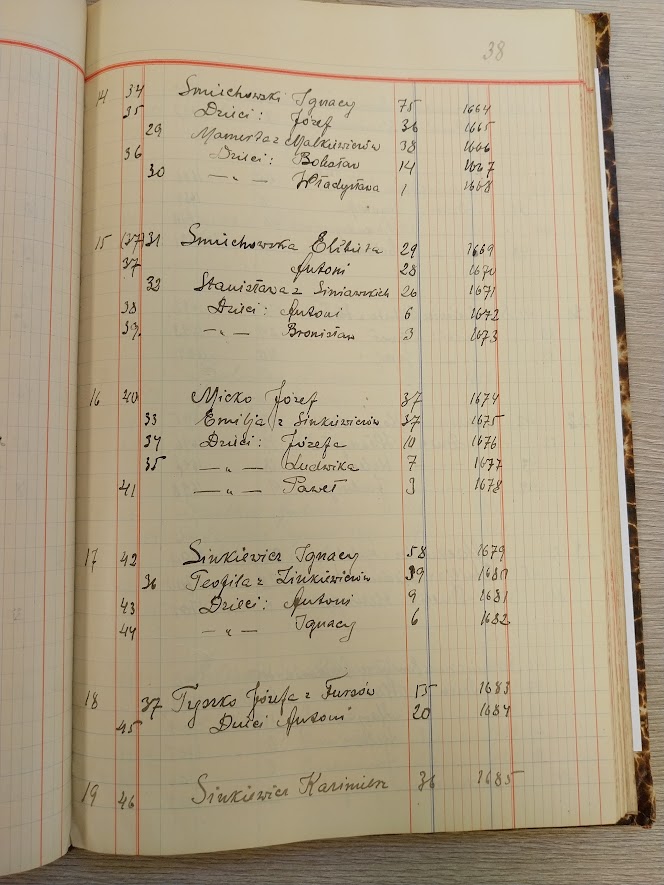 38
14 34 Smichowski Ignacy 75 1664
35 Dzieci: Józef 36 1665
29 Mamerta z Malkiewiczów 38 1666
36 Dzieci: Bolesław 14 1667
30 — „ — Władysława 1 1668
15 (37) 31 Smichowska Elżbieta 29 1669
37 Antoni 28 1670
32 Stanisława z Siniawskich 26 1671
38 Dzieci: Antoni 6 1672
39. — „ — Bronisław 3 1673
16 40 Micko Józef 37 1674
33 Emilja z Sinkiewiczów 37 1675
34 Dzieci: Józefa 10 1676
35 — „ — Ludwika 7 1677
41 — „ — Paweł 3 1678
17 42 Sinkiewicz Ignacy 58 1679
36 Teofila z Zinkiewiczów 39 1680
43 Dzieci: Antoni 9 1681
44 — „ — Ignacy 6 1682
18 37 Tyszko Józefa z Fursów 55 1683
45 Dzieci Antoni 20 1684
19 46 Sinkiewicz Kazimierz 36 1685